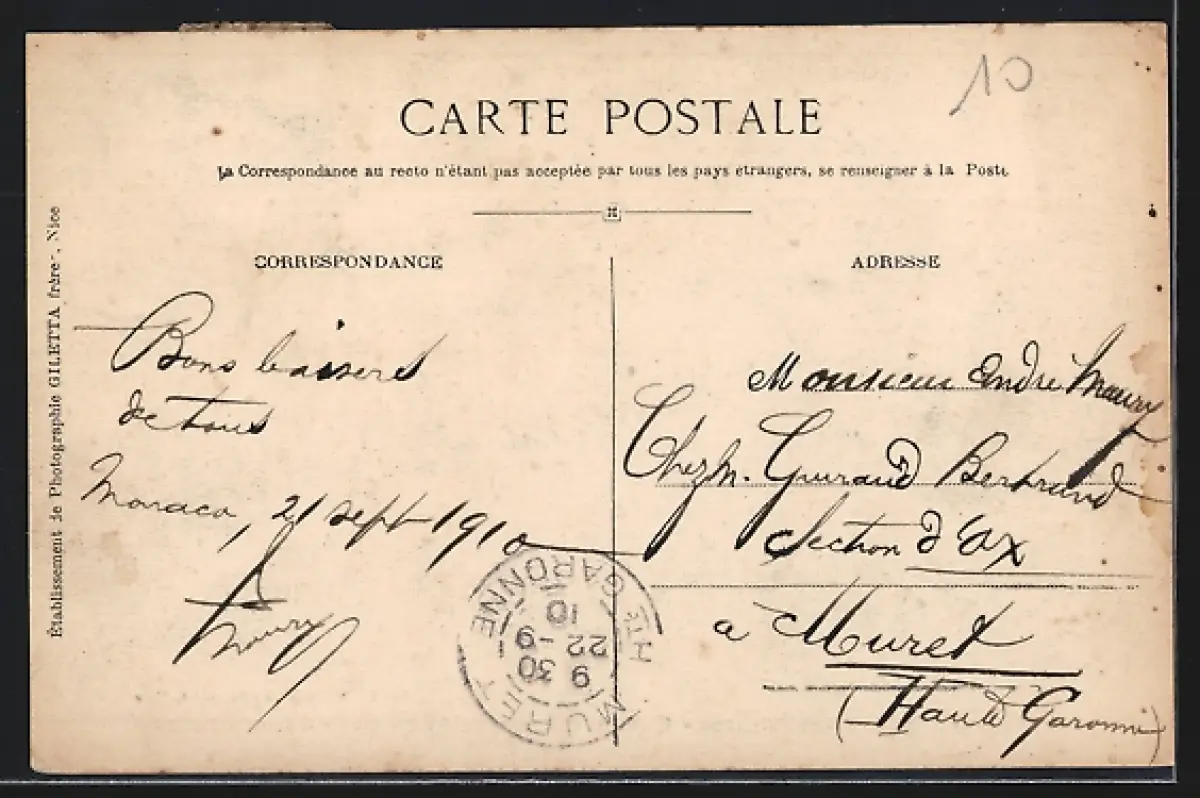 10
CARTE POSTALE
La Correspondance au recto n'étant pas acceptée par tous les pays étrangers, se renseigner à la Poste
CORRESPONDANCE
ADRESSE
Établissement de Photographie GILETTA frères, Nice
Bons baisers
de tous
Monaco, 21 sept 1910
Maury
Monsieur André Maury
Chez M. Guiraud Bertrand
Section d'Ax
a Muret
(Haute Garonne)
MURET HTE GARONNE
9 30
22 -9
10